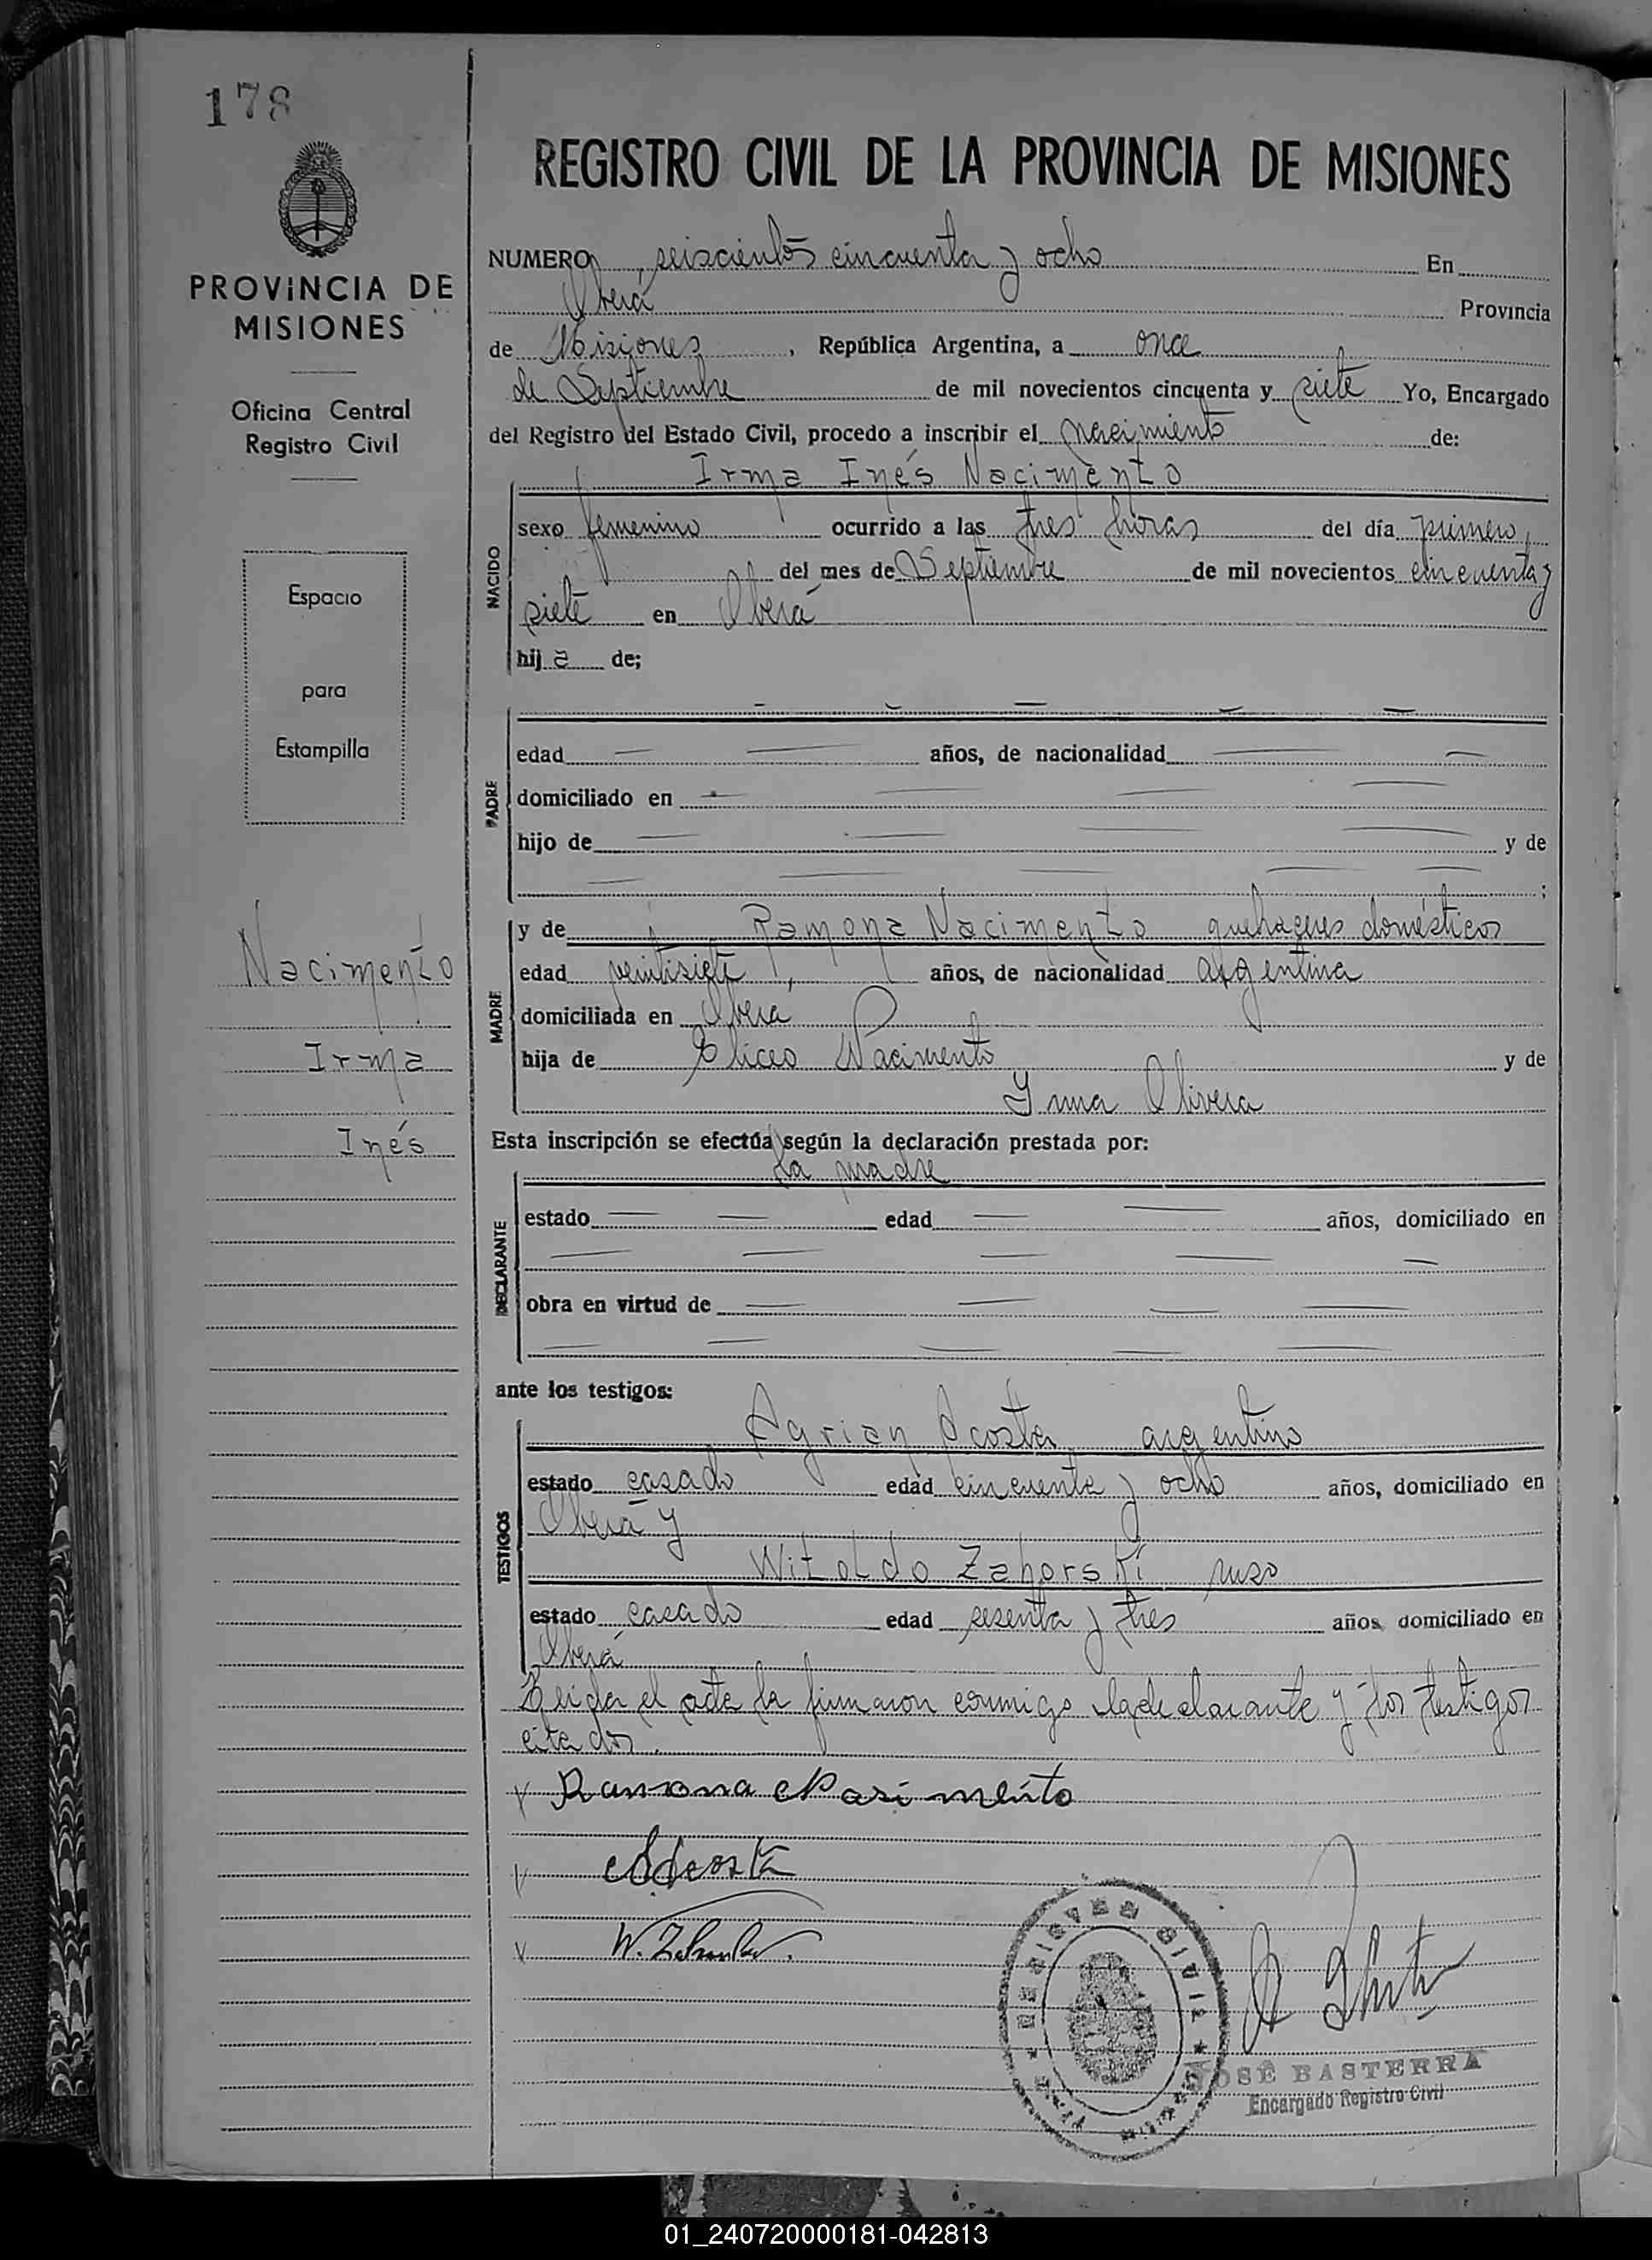 178
PROVINCIA DE
MISIONES
Oficina Central
Registro Civil
Espacio
para
Estampilla
Nacimento
Irma
Inés
REGISTRO CIVIL DE LA PROVINCIA DE MISIONES
NUMERO seiscientos cincuenta y ocho En
Oberá Provincia
de Misiones, República Argentina, a once
de Septiembre de mil novecientos cincuenta y siete Yo, Encargado
del Registro del Estado Civil, procedo a inscribir el nacimiento de:
Irma Inés Nacimento
NACIDO
sexo femenino ocurrido a las tres horas del día primero
del mes de Septiembre de mil novecientos cincuenta y
siete en Oberá
hija de;
PADRE
edad años, de nacionalidad
domiciliado en
hijo de y de
;
MADRE
y de Ramona Nacimento quehaceres domésticos
edad veintisiete años, de nacionalidad argentina
domiciliada en Oberá
hija de Eliceo Nacimento y de
Ynna Olivera
Esta inscripción se efectúa según la declaración prestada por:
la madre
DECLARANTE
estado edad años, domiciliado en
obra en virtud de
ante los testigos:
TESTIGOS
Agrian Acosta argentino
estado casado edad cincuenta y ocho años, domiciliado en
Oberá y
Witoldo Zahorski ruso
estado casado edad sesenta y tres años domiciliado en
Oberá
Leida el acta la firmaron conmigo la declarante y los testigos
citados.
Ramona Nasimento
AAcosta
JOSÉ BASTERRA
Encargado Registro Civil
REGISTRO CIVIL
01_240720000181-042813